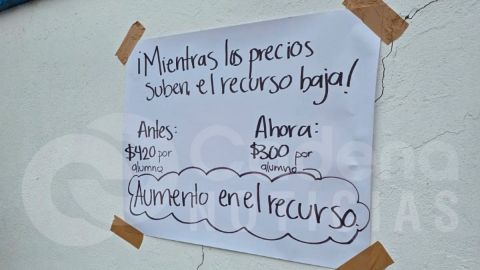 ¡Mientras los precios
suben, el recurso baja!
Antes:
$420 por
alumno
Ahora:
$300 por
alumno
Aumento en el recurso.
Cadena
NOTICIAS